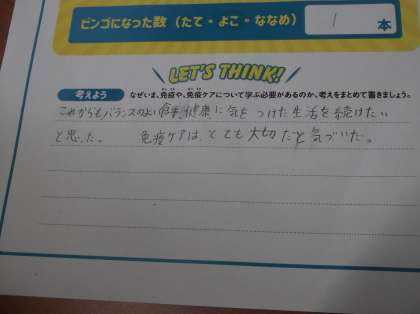 ビンゴになった数(たて・よこ・ななめ) 1 本
LET'S THINK!
考えよう なぜいま、免疫や、免疫ケアについて学ぶ必要があるのか、考えをまとめて書きましょう。
これからもバランスのよい食事、健康に気をつけた生活を続けたい
と思った。 免疫ケアは、とても大切だと気づいた。